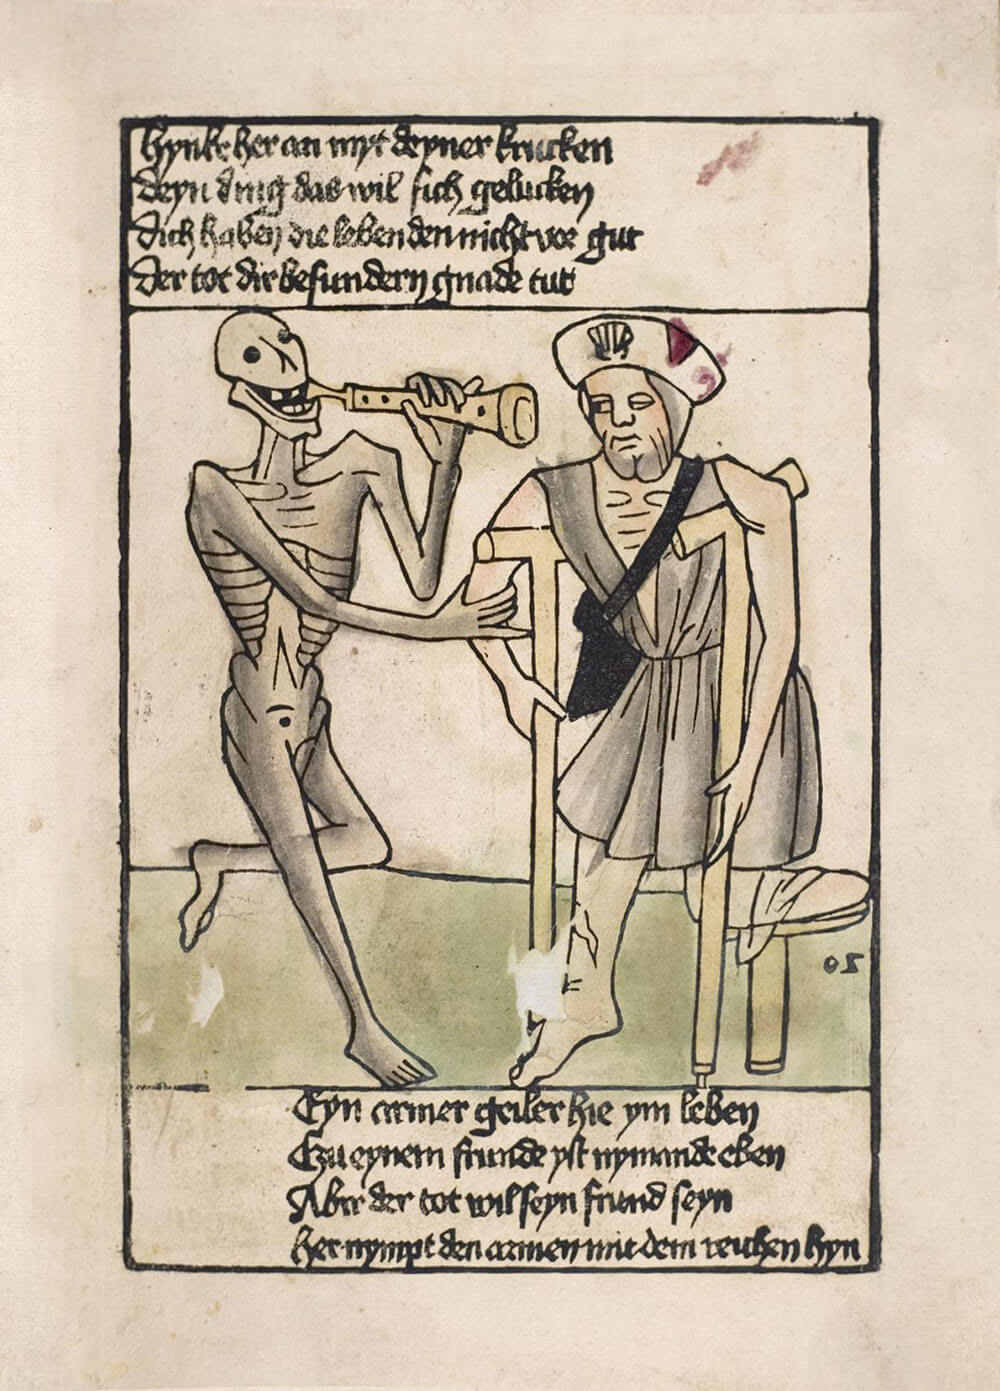 Hynke her an myt deyner krucken
Deyn ding das wil sich gelucken
Dich haben die lebenden nicht vor gut
Der tot dir besundern gnade tut
Eyn armer geiler hie ym leben
Czu eynem frunde yst nymande eben
Aber der tot wil seyn frund seyn
Her nympt den armen mit dem reichen hyn